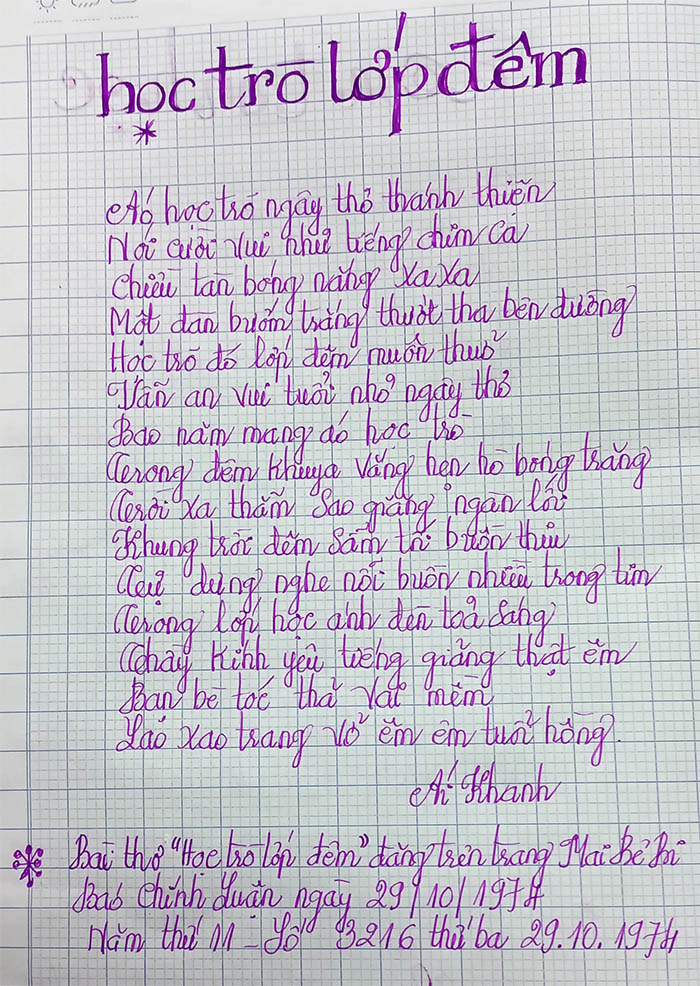 học trò lớp đêm
*
Áo học trò ngây thơ thánh thiện
Nói cười vui như tiếng chim ca
Chiều tàn bóng nắng xa xa
Một đàn bướm trắng thướt tha bên đường
Học trò đó lớp đêm muôn thuở
Vẫn an vui tuổi nhỏ ngây thơ
Bao năm mang áo học trò
Trong đêm khuya vắng hẹn hò bóng trăng
Trời xa thẳm sao giăng ngàn lối
Khung trời đêm sẫm tối buồn thiu
Tự dưng nghe nỗi buồn nhiều trong tim
Trong lớp học ánh đèn toả sáng
Thầy kính yêu tiếng giảng thật êm
Bạn bè tóc thả vai mềm
Lao xao trang vở êm êm tuổi hồng.
Ái Khanh
Bài thơ "Học trò lớp đêm" đăng trên trang Mai Bê Bi
Báo Chính Luận ngày 29/10/1974
Năm thứ 11 - Số 3216 thứ ba 29.10.1974